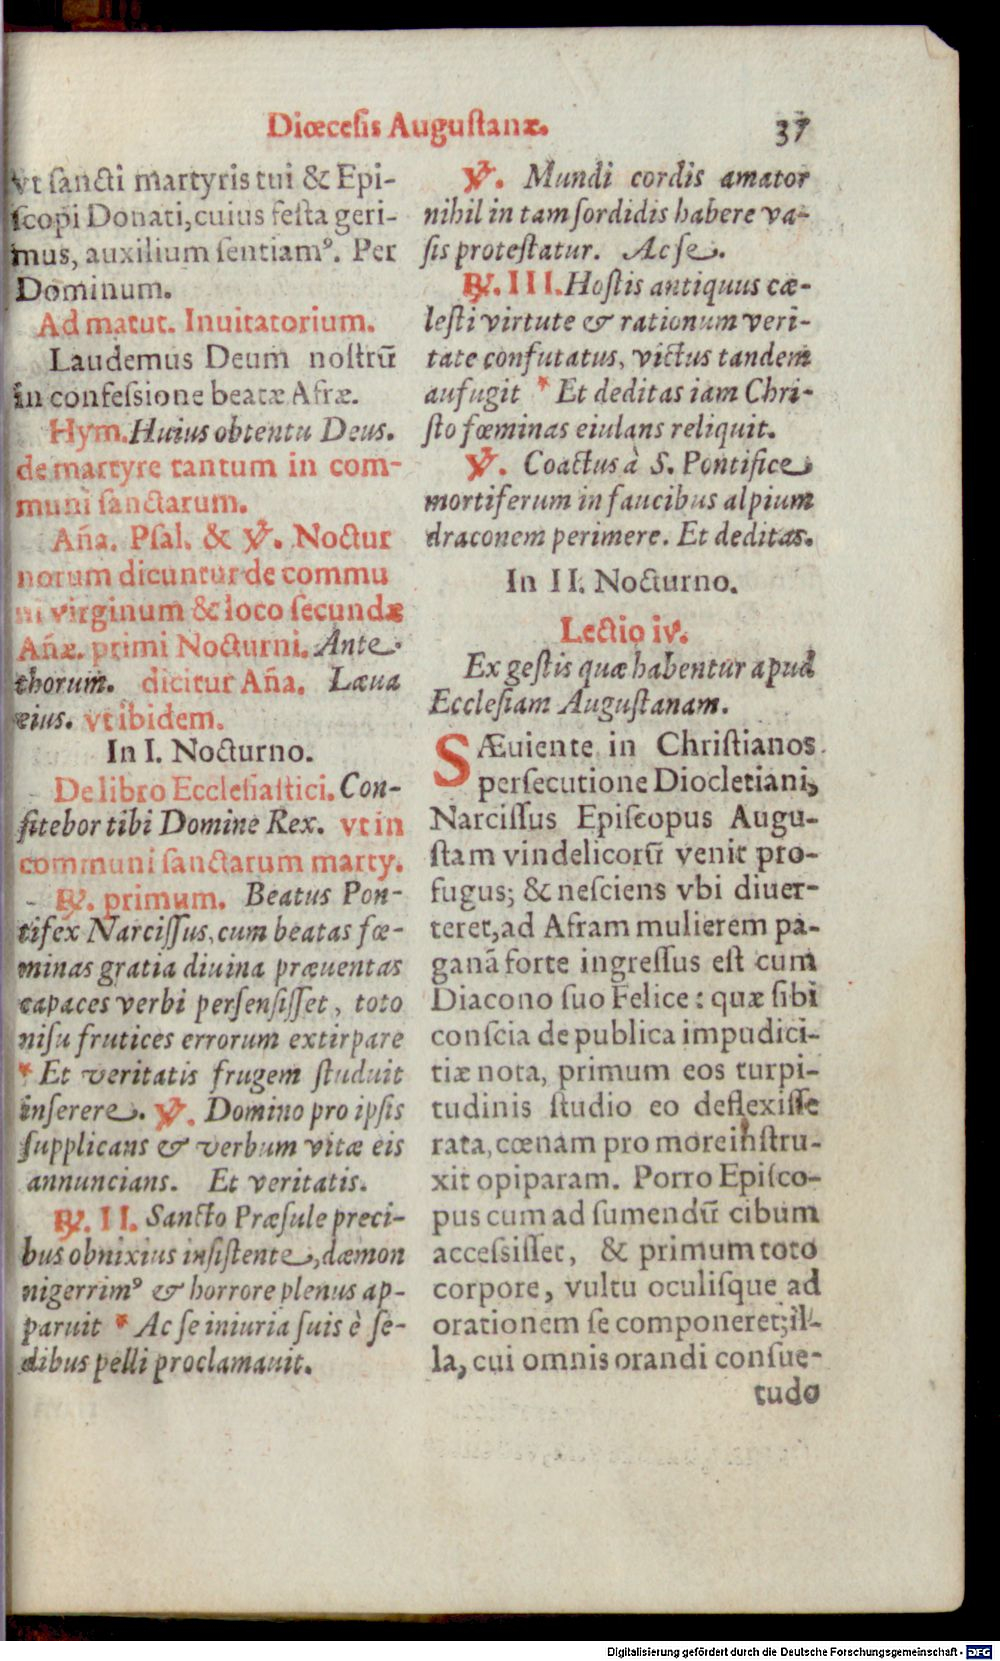 Diœcesis Augustanæ. 37
vt ſancti martyris tui & Epi-
ſcopi Donati, cuius feſta geri-
mus, auxilium ſentiamꝰ. Per
Dominum.
Ad matut. Inuitatorium.
Laudemus Deum noſtrũ
in confeſsione beatæ Afræ.
Hym. Huius obtentu Deus.
de martyre tantum in com-
muni ſanctarum.
Añа. Pſal. & ℣. Noctur
norum dicuntur de commu
ni virginum & loco ſecundæ
Añæ. primi Nocturni. Ante
thorum. dicitur Aña. Læua
eius. vt ibidem.
In I. Nocturno.
De libro Eccleſiaſtici. Con-
fitebor tibi Domine Rex. vt in
communi ſanctarum marty.
℟. primum. Beatus Pon-
tifex Narciſſus, cum beatas fœ-
minas gratia diuina præuentas
capaces verbi perſenſiſſet, toto
niſu frutices errorum extirpare
* Et veritatis frugem ſtuduit
inſerere. ℣. Domino pro ipſis
ſupplicans & verbum vitæ eis
annuncians. Et veritatis.
℟. II. Sancto Præſule preci-
bus obnixius inſiſtente, dæmon
nigerrimꝰ & horrore plenus ap-
paruit * Ac ſe iniuria ſuis è ſe-
dibus pelli proclamauit.
℣. Mundi cordis amator
nihil in tam ſordidis habere va-
ſis proteſtatur. Ac ſe.
℟. III. Hoſtis antiquus cæ-
leſti virtute & rationum veri-
tate confutatus, victus tandem
aufugit * Et deditas iam Chri-
ſto fœminas eiulans reliquit.
℣. Coactus à S. Pontifice
mortiferum in faucibus alpium
draconem perimere. Et deditas.
In II. Nocturno.
Lectio iv.
Ex geſtis quæ habentur apud
Eccleſiam Auguſtanam.
SÆuiente in Chriſtianos
perſecutione Diocletiani,
Narciſſus Epiſcopus Augu-
ſtam vindelicorũ venit pro-
fugus; & neſciens vbi diuer-
teret, ad Afram mulierem pa-
ganã forte ingreſſus eſt cum
Diacono ſuo Felice: quæ ſibi
conſcia de publica impudici-
tiæ nota, primum eos turpi-
tudinis ſtudio eo deflexiſſe
rata, cœnam pro more inſtru-
xit opiparam. Porro Epiſco-
pus cum ad ſumendũ cibum
acceſsiſſet, & primum toto
corpore, vultu oculiſque ad
orationem ſe componeret; il-
la, cui omnis orandi conſue-
tudo
Digitalisierung gefördert durch die Deutsche Forschungsgemeinschaft - DFG